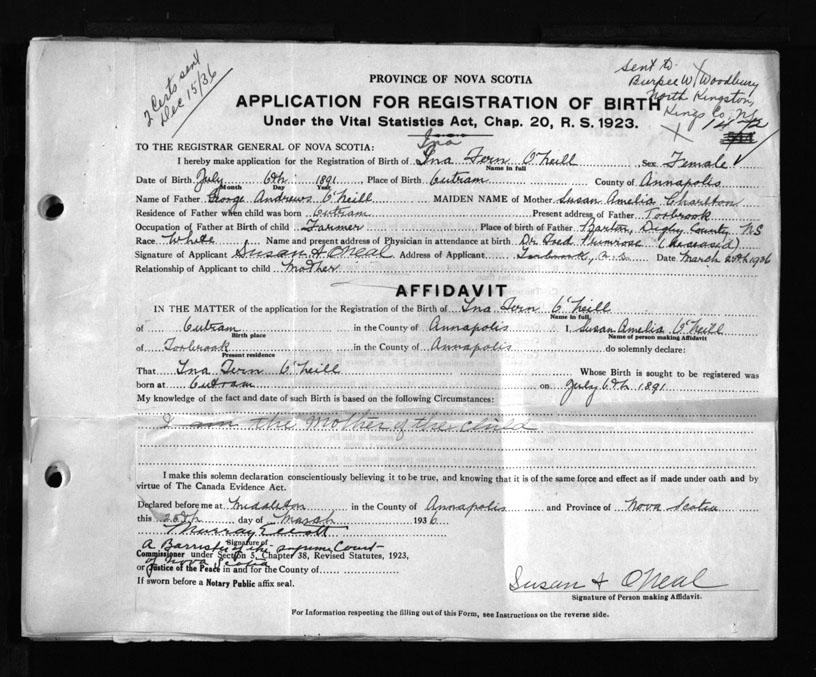 2 Certs sent
Dec 15/36
Sent to
Burpee W. Woodbury
North Kingston,
Kings Co., N.S.
PROVINCE OF NOVA SCOTIA
APPLICATION FOR REGISTRATION OF BIRTH
Under the Vital Statistics Act, Chap. 20, R. S. 1923.
Ina
TO THE REGISTRAR GENERAL OF NOVA SCOTIA:
I hereby make application for the Registration of Birth of Ina Fern O'Neill Sex Female
Name in full
Date of Birth July 6th 1891 Place of Birth Outram County of Annapolis
Month Day Year
Name of Father George Andrews O'Neill MAIDEN NAME of Mother Susan Amelia Charlton
Residence of Father when child was born Outram Present address of Father Torbrook
Occupation of Father at Birth of child Farmer Place of birth of Father Barton, Digby County NS
Race White Name and present address of Physician in attendance at birth Dr Fred Primrose (Deceased)
Signature of Applicant Susan A O'Neal Address of Applicant Torbrook, Date March 20th 1936
Relationship of Applicant to child Mother
AFFIDAVIT
IN THE MATTER of the application for the Registration of the Birth of Ina Fern O'Neill
Name in full
of Outram in the County of Annapolis I, Susan Amelia O'Neill
Birth place Name of person making Affidavit
of Torbrook in the County of Annapolis do solemnly declare:
Present residence
That Ina Fern O'Neill Whose Birth is sought to be registered was
born at Outram on July 6th 1891
My knowledge of the fact and date of such Birth is based on the following Circumstances:
I am the Mother of the child
I make this solemn declaration conscientiously believing it to be true, and knowing that it is of the same force and effect as if made under oath and by
virtue of The Canada Evidence Act.
Declared before me at Middleton in the County of Annapolis and Province of Nova Scotia
this 20th day of March 1936
Murray Elliott
Signature of
A Barrister of the Supreme Court
Commissioner under Section 5, Chapter 38, Revised Statutes, 1923,
of Nova Scotia
or Justice of the Peace in and for the County of
If sworn before a Notary Public affix seal.
Susan A O'Neal
Signature of Person making Affidavit.
For Information respecting the filling out of this Form, see Instructions on the reverse side.